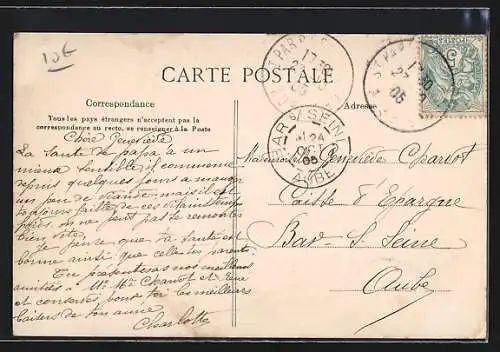 10€
CARTE POSTALE
Correspondance
Tous les pays étrangers n'acceptent pas la
correspondance au recto, se renseigner à la Poste
Adresse
BAR S/ SEINE
24
OCT
05
AUBE
Chère Geneviève
La santé de papa a un
mieux sensible il commence
depuis quelques jours a manger
un peu de viande mais il est
toujours faible de ces
ne peut pas se remonter
bien vite.
Je pense que ta santé est
bonne ainsi que celle tes parents
Tu présenteras nos meilleures
amitiés à Mr Mme Chardot et
et conserves pour toi les meilleurs
baisers de ton amie
Charlotte
Mademoiselle Geneviève Chardot
Caisse d'Epargne
Bar-s-Seine
Aube